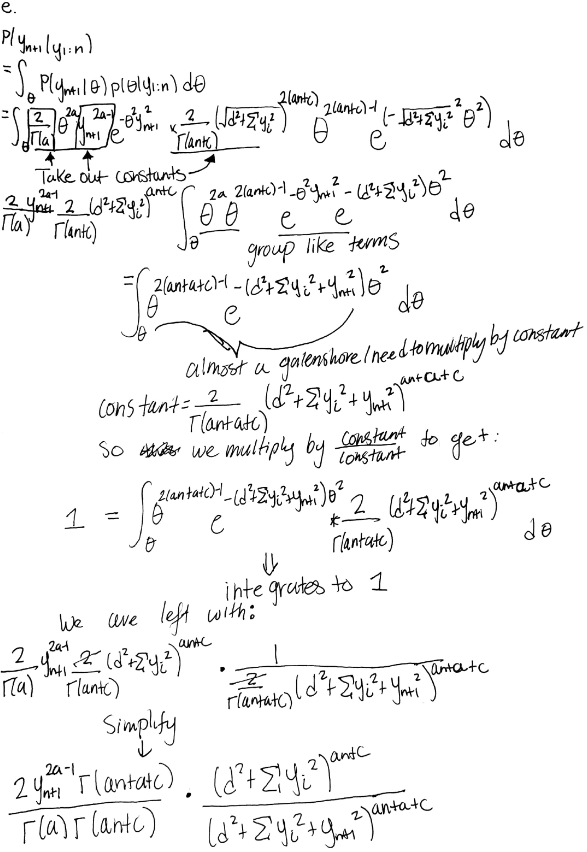 e.
P(y_{n+1}|y_{1:n})
= ∫_θ P(y_{n+1}|θ) p(θ|y_{1:n}) dθ
= ∫_θ 2/Γ(a) θ^{2a} y_{n+1}^{2a-1} e^{-θ²y_{n+1}²} * 2/Γ(an+c) (√(d²+Σy_i²))^{2(an+c)} θ^{2(an+c)-1} e^{(-√(d²+Σy_i²)² θ²)} dθ
Take out constants
2/Γ(a) y_{n+1}^{2a-1} 2/Γ(an+c) (d²+Σy_i²)^{an+c} ∫_θ θ^{2a} θ^{2(an+c)-1} e^{-θ²y_{n+1}²} e^{-(d²+Σy_i²)θ²} dθ
group like terms
= ∫_θ θ^{2(an+a+c)-1} e^{-(d²+Σy_i²+y_{n+1}²)θ²} dθ
almost a galenshore/need to multiply by constant
constant = 2/Γ(an+a+c) (d²+Σy_i²+y_{n+1}²)^{an+a+c}
so we multiply by constant/constant to get:
1 = ∫_θ θ^{2(an+a+c)-1} e^{-(d²+Σy_i²+y_{n+1}²)θ²} * 2/Γ(an+a+c) (d²+Σy_i²+y_{n+1}²)^{an+a+c} dθ
⇓
integrates to 1
We are left with:
2/Γ(a) y_{n+1}^{2a-1} 2/Γ(an+c) (d²+Σy_i²)^{an+c} · 1/(2/Γ(an+a+c) (d²+Σy_i²+y_{n+1}²)^{an+a+c})
Simplify
↓
2y_{n+1}^{2a-1} Γ(an+a+c)/Γ(a)Γ(an+c) · (d²+Σy_i²)^{an+c}/(d²+Σy_i²+y_{n+1}²)^{an+a+c}